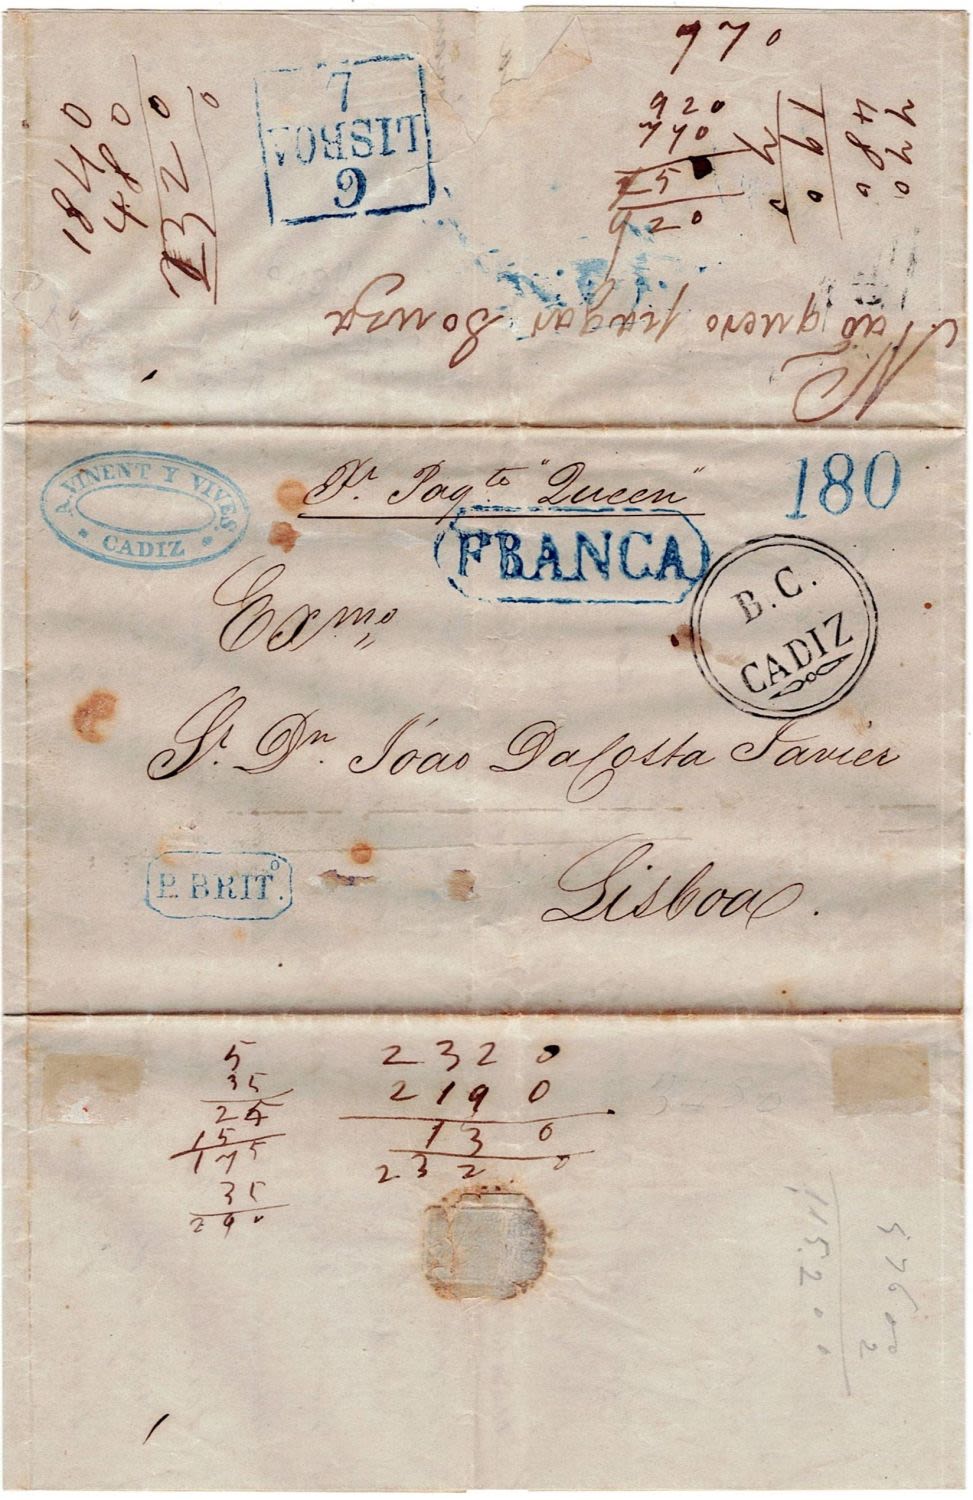 970
920
770
150
920
770
480
190
1840
480
2320
7
LISBOA
6
Não quero pagar Souza
A. VINENT Y VIVES
* CADIZ *
Pr. Paqte "Queen"
180
FRANCA
B. C.
CADIZ
Exmo
Sr. Dn. Joao Da Costa Javier
P. BRITO.
Lisboa.
5
35
25
15
175
35
290
2320
2190
130
2320
5760
2
11520